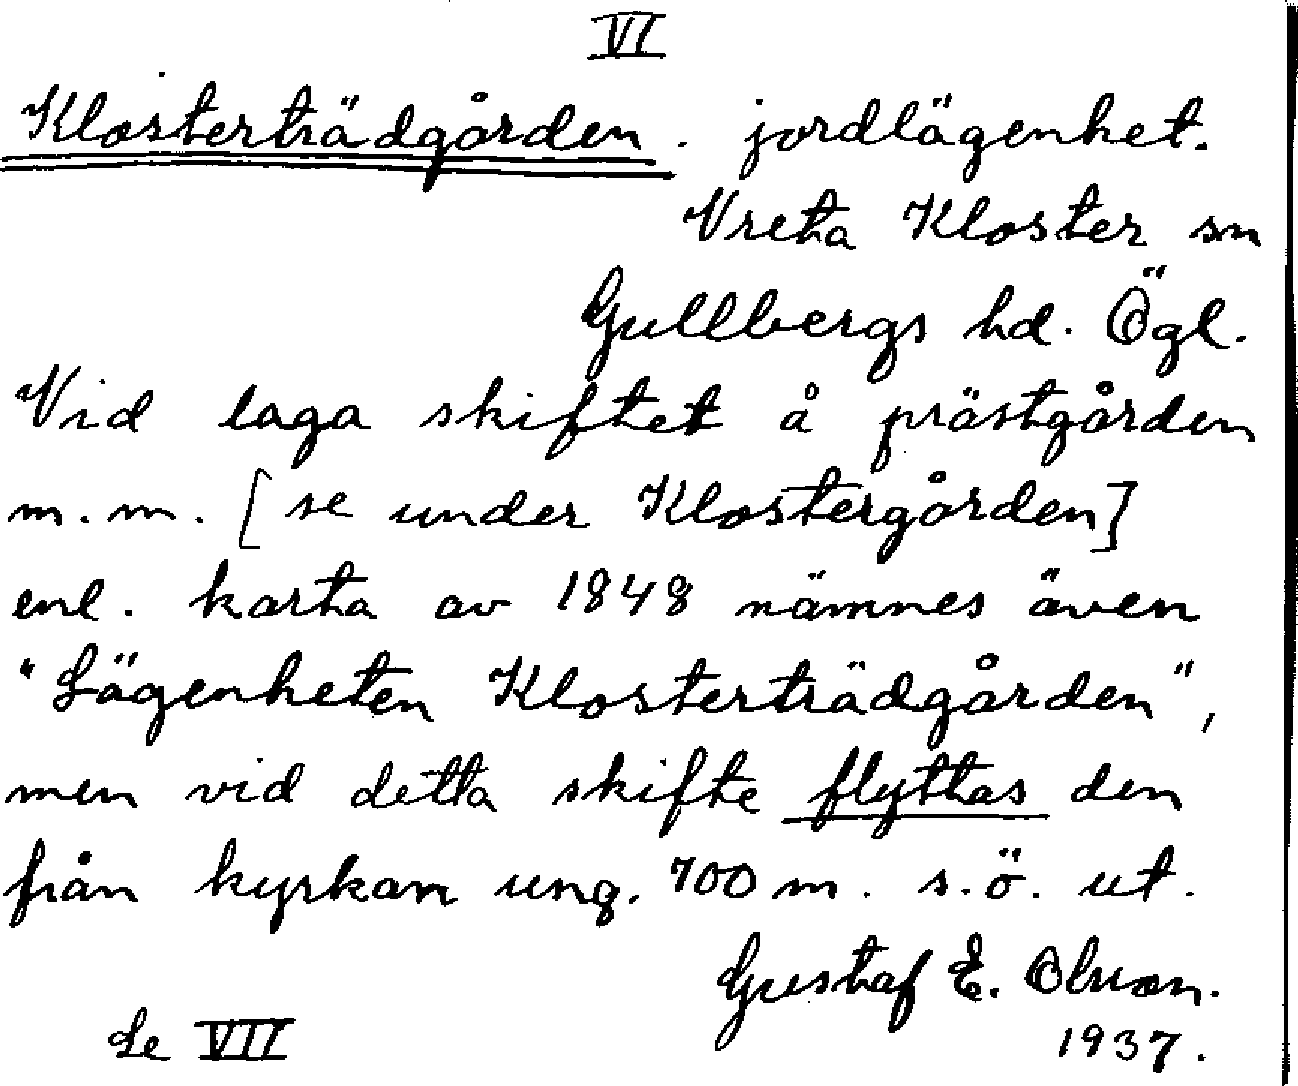 VI
Klosterträdgården. jordlägenhet.
Vreta Kloster sn
Gullbergs hd. Ögl.
Vid laga skiftet å prästgården
m.m. [se under Klostergården]
enl. karta av 1848 nämnes även
"Lägenheten Klosterträdgården",
men vid detta skifte flyttas den
från kyrkan ung. 700 m. s.ö. ut.
Gustaf E. Olsson.
Se VII 1937.